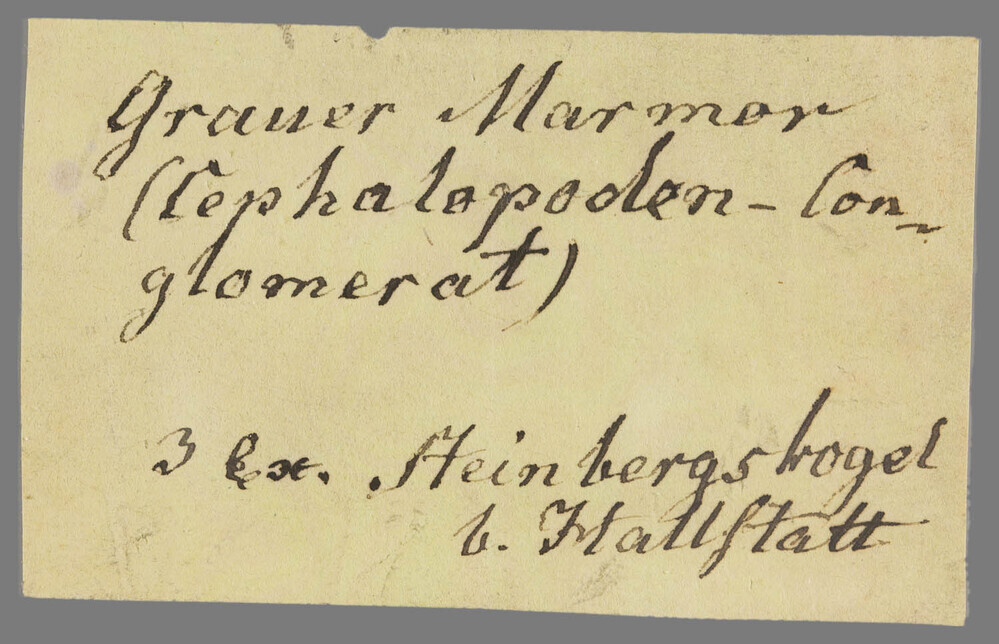 Grauer Marmor
(Cephalopoden-Con-
glomerat)
3 Ex. Steinbergskogel
b. Hallstatt